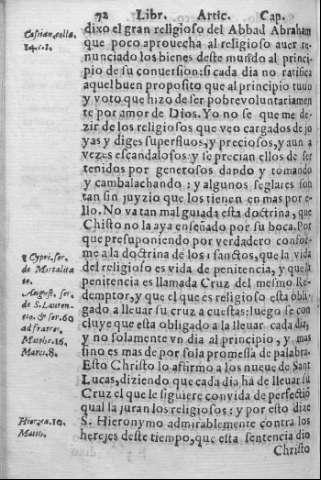 72 Libr. Artic. Cap.
dixo el gran religioso del Abbad Abraham
que poco aprouecha al religioso auer re-
nunciado los bienes deste mundo al princi-
pio de su conuersion: si cada dia no ratifica
aquel buen proposito que al principio tuuo
y voto que hizo de ser pobre voluntariamen
te por amor de Dios. Yo no se que me de-
zir de los religiosos que veo cargados de jo
yas y diges superfluos, y preciosos, y aun a
vezes escandalosos y se precian ellos de ser
tenidos por generosos dando y tomando
y cambalachando: y algunos seglares son
tan sin juyzio que los tienen en mas por e-
llo. No va tan mal guiada esta doctrina, que
Christo no la aya enseñado por su boca. Por
que presuponiendo por verdadero confor-
me a la doctrina de los sanctos, que la vida
del religioso es vida de penitencia, y que la
penitencia es llamada Cruz del mesmo Re-
demptor, y que el que es religioso esta obli-
gado a lleuar su cruz a cuestas: luego se con
cluye que esta obligado a la lleuar cada dia,
y no solamente vn dia al principio, y mas
sino es mas de por sola promessa de palabra.
Esto Christo lo affirmo a los nueue de Sant
Lucas, diziendo que cada dia ha de lleuar su
Cruz el que le siguiere con vida de perfectiõ
qual la juran los religiosos: y por esto dize
S. Hieronymo admirablemente contra los
herejes deste tiempo, que esta sentencia dio
Christo
Cassian. colla.
24. c. 1.
Cypri. ser.
de Mortalita
te.
August. ser.
de S. Lauren-
tio. & ser. 60
ad fratres.
Matth. 16.
Marci. 8.
Hieron. 10.
Matth.